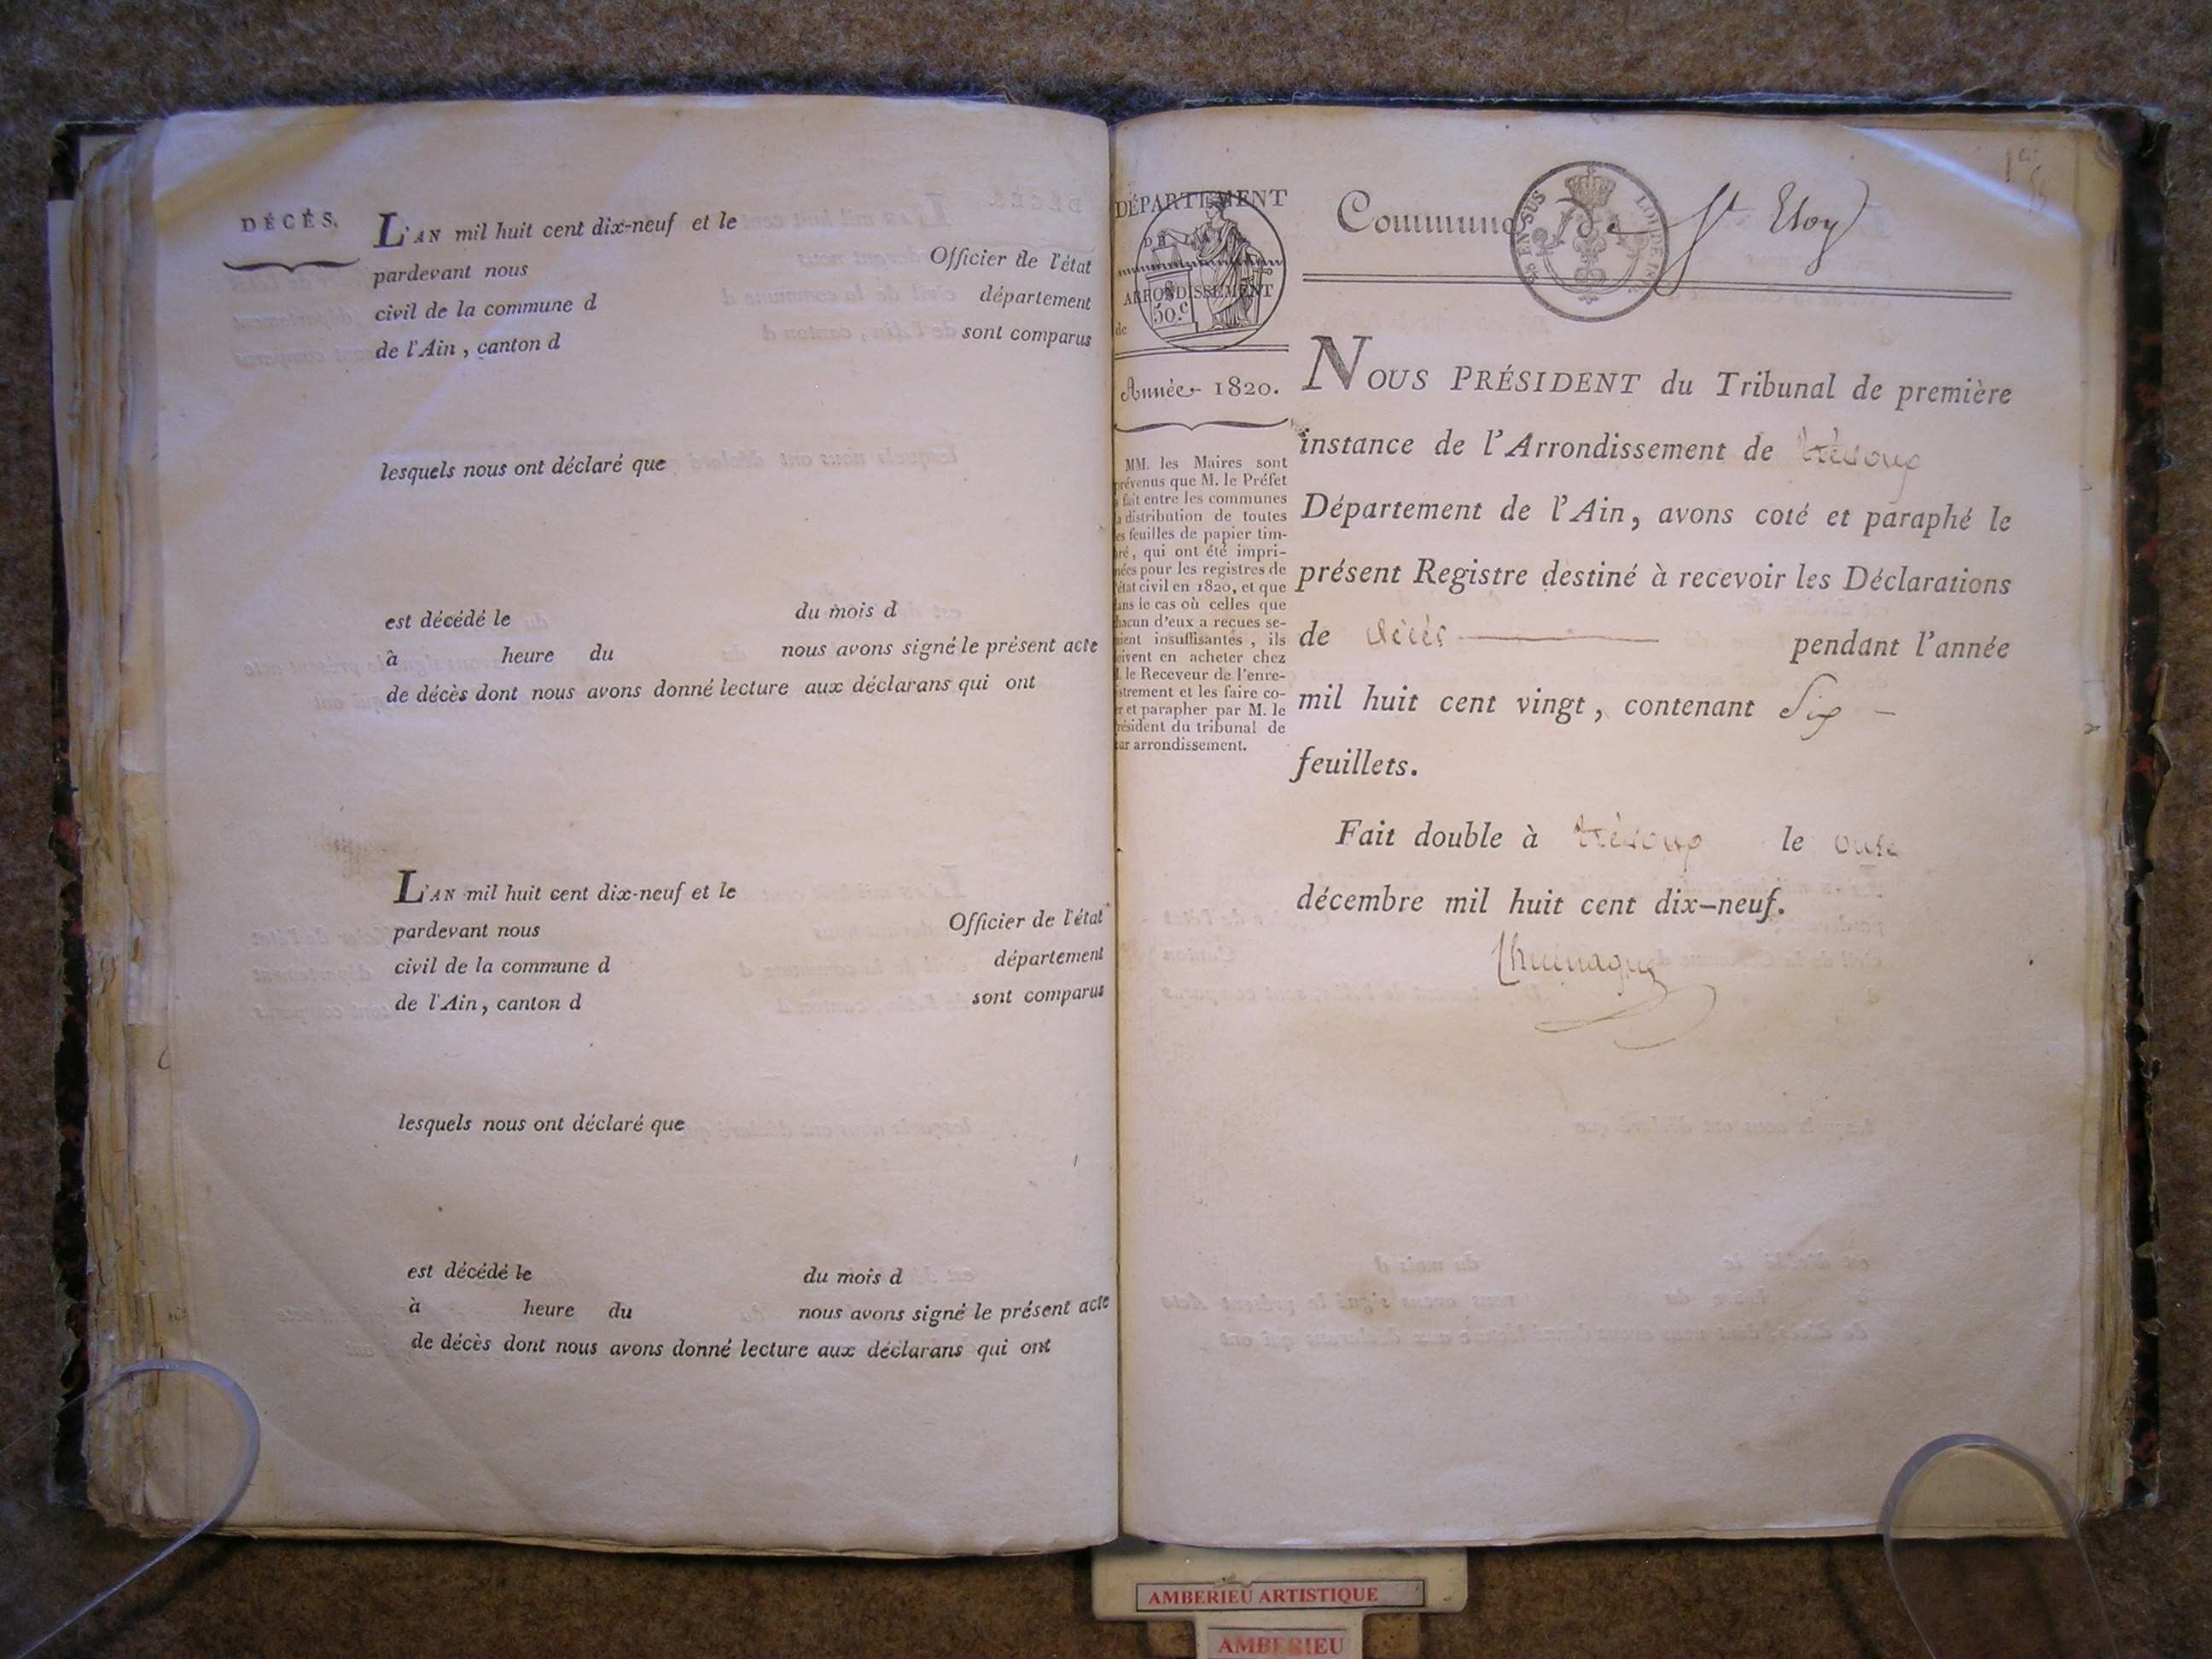 DÉCÈS.
L'AN mil huit cent dix-neuf et le
pardevant nous Officier de l'état
civil de la commune d département
de l'Ain, canton d sont comparus
lesquels nous ont déclaré que
est décédé le du mois d
à heure du nous avons signé le présent acte
de décès dont nous avons donné lecture aux déclarans qui ont
L'AN mil huit cent dix-neuf et le
pardevant nous Officier de l'état
civil de la commune d département
de l'Ain, canton d sont comparus
lesquels nous ont déclaré que
est décédé le du mois d
à heure du nous avons signé le présent acte
de décès dont nous avons donné lecture aux déclarans qui ont
DÉPARTEMENT
ARRONDISSEMENT
50.c
de
Année 1820.
MM. les Maires sont
prévenus que M. le Préfet
fait entre les communes
distribution de toutes
feuilles de papier tim-
bré, qui ont été impri-
mées pour les registres de
l'état civil en 1820, et que
dans le cas où celles que
chacun d'eux a reçues se-
roient insuffisantes, ils
doivent en acheter chez
le Receveur de l'enre-
gistrement et les faire co-
ter et parapher par M. le
président du tribunal de
leur arrondissement.
Commune de St Eloy
NOUS PRÉSIDENT du Tribunal de première
instance de l'Arrondissement de Trévoux
Département de l'Ain, avons coté et paraphé le
présent Registre destiné à recevoir les Déclarations
de décès pendant l'année
mil huit cent vingt, contenant Six
feuillets.
Fait double à Trévoux le onze
décembre mil huit cent dix-neuf.
AMBERIEU ARTISTIQUE
AMBERIEU